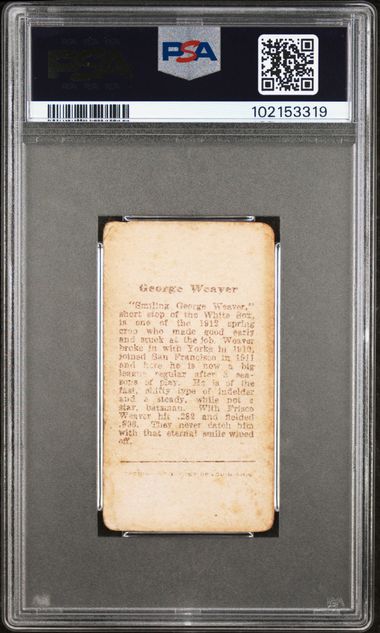 PSA
PSA
102153319
George Weaver
"Smiling George Weaver,"
short stop of the White Sox,
is one of the 1912 spring
crop who made good early
and stuck at the job. Weaver
broke in with Yorks in 1910,
joined San Francisco in 1911
and here he is now a big
league regular after 3 sea-
sons of play. He is of the
fast, shifty type of infielder
and a steady, while not a
star, batsman. With Frisco
Weaver hit .282 and fielded
They never catch him
with that eternal smile wiped
off.